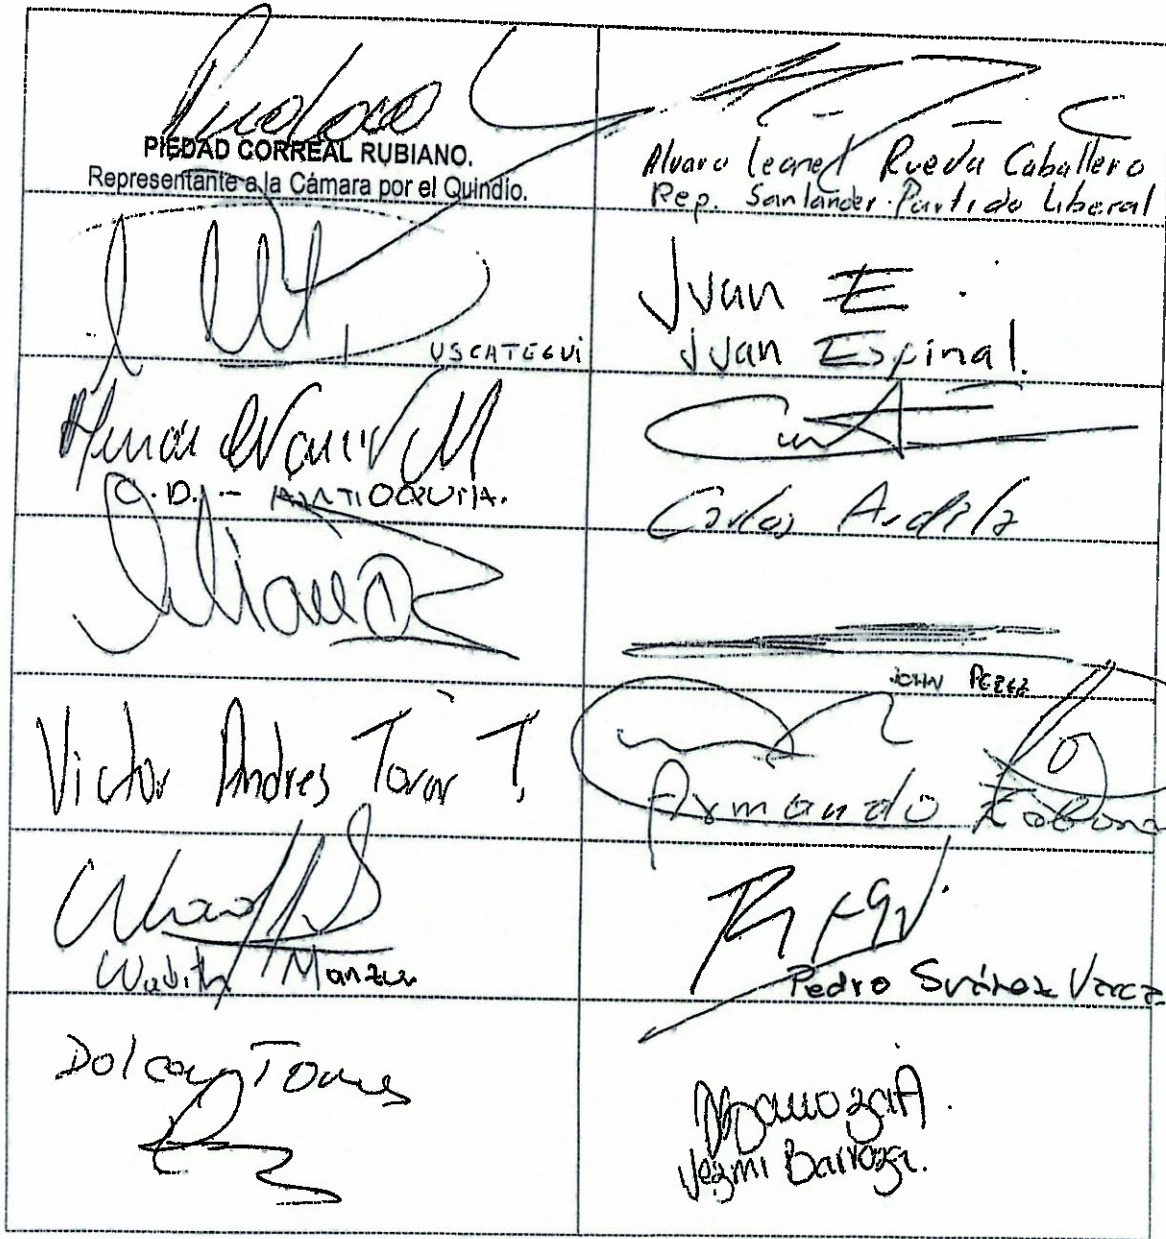 PIEDAD CORREAL RUBIANO.
Representante a la Cámara por el Quindío.
Alvaro Leonel Rueda Caballero
Rep. Santander. Partido Liberal
USCATEGUI
Juan E.
Juan Espinal.
C.D. - ANTIOQUIA.
Carlos Ardila
JOHN PEREZ
Victor Andres Tovar T.
Armando
Wadith Manzur
Pedro Suárez Vacca
Dolcey Torres
Yezmi Barraza.